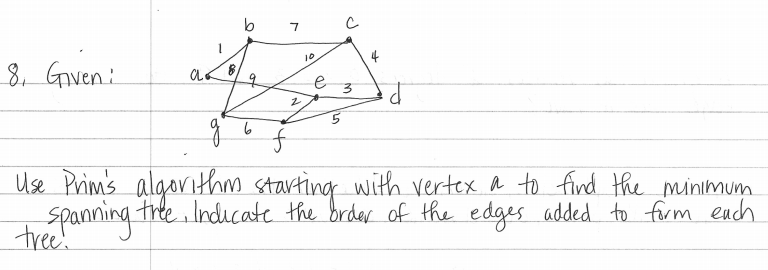 b 7 c
1 10 4
8. Given: a 8 9 e 3 d
2
g 6 f 5
Use Prim's algorithm starting with vertex a to find the minimum
spanning tree. Indicate the order of the edges added to form each
tree.